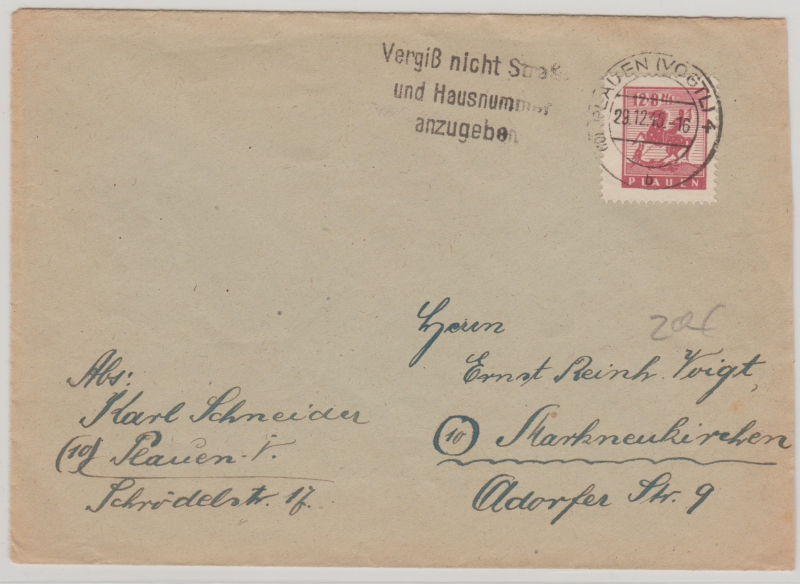 Vergiß nicht Straße
und Hausnummer
anzugeben
PLAUEN (VOGTL) 4
29.12.45.-16
b
12+8
PLAUEN
Herrn
Ernst Reinh. Voigt,
(10) Markneukirchen
Adorfer Str. 9
Abs:
Karl Schneider
(10) Plauen-V.
Schrödelstr. 17.